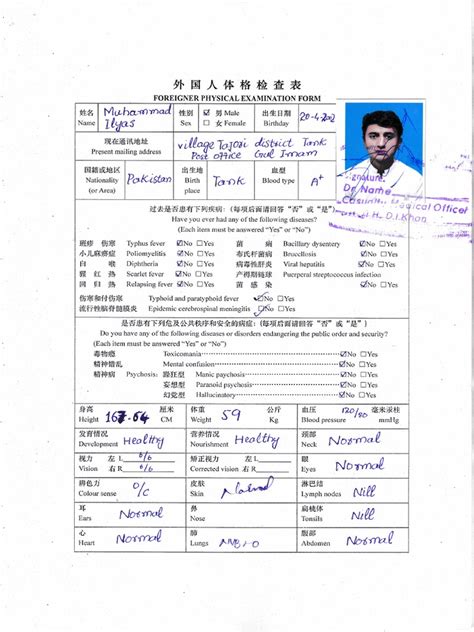 外国人体格检查表
FOREIGNER PHYSICAL EXAMINATION FORM
姓名 Name Muhammad Ilyas 性别 Sex ☑ 男 Male ☐ 女 Female 出生日期 Birthday 20-4-2002
现在通讯地址 Present mailing address village Tajori district Tank
Post office Gul Imam
国籍或地区 Nationality (or Area) Pakistan 出生地 Birth place Tank 血型 Blood type A+
Signature
Dr. Name
Casualty Medical Officer
D.I.Khan
过去是否患有下列疾病：(每项后面请回答“否”或“是”)
Have you ever had any of the following diseases?
(Each item must be answered “Yes” or “No”)
斑疹伤寒 Typhus fever ☑No ☐Yes 菌痢 Bacillary dysentery ☑No ☐Yes
小儿麻痹症 Poliomyelitis ☑No ☐Yes 布氏杆菌病 Brucellosis ☑No ☐Yes
白喉 Diphtheria ☑No ☐Yes 病毒性肝炎 Viral hepatitis ☑No ☐Yes
猩红热 Scarlet fever ☑No ☐Yes 产褥期链球 Puerperal streptococcus infection
回归热 Relapsing fever ☑No ☐Yes 菌感染 ☑No ☐Yes
伤寒和付伤寒 Typhoid and paratyphoid fever ☑No ☐Yes
流行性脑脊髓膜炎 Epidemic cerebrospinal meningitis ☑No ☐Yes
是否患有下列危及公共秩序和安全的病症：(每项后面请回答“否”或“是”)
Do you have any of the following diseases or disorders endangering the public order and security?
(Each item must be answered “Yes” or “No”)
毒物瘾 Toxicomania ☑No ☐Yes
精神错乱 Mental confusion ☑No ☐Yes
精神病 Psychosis: 躁狂型 Manic psychosis ☑No ☐Yes
妄想型 Paranoid psychosis ☑No ☐Yes
幻觉型 Hallucinatory ☑No ☐Yes
身高 Height 167.64 厘米 CM 体重 Weight 59 公斤 Kg 血压 Blood pressure 120/80 毫米汞柱 mmHg
发育情况 Development Healthy 营养情况 Nourishment Healthy 颈部 Neck Normal
视力 Vision 左 L 6/6 右 R 6/6 矫正视力 Corrected vision 左 L 右 R 眼 Eyes Normal
辨色力 Colour sense 皮肤 Skin Normal 淋巴结 Lymph nodes Nill
耳 Ears Normal 鼻 Nose Normal 扁桃体 Tonsils Nill
心 Heart Normal 肺 Lungs 腹部 Abdomen Normal